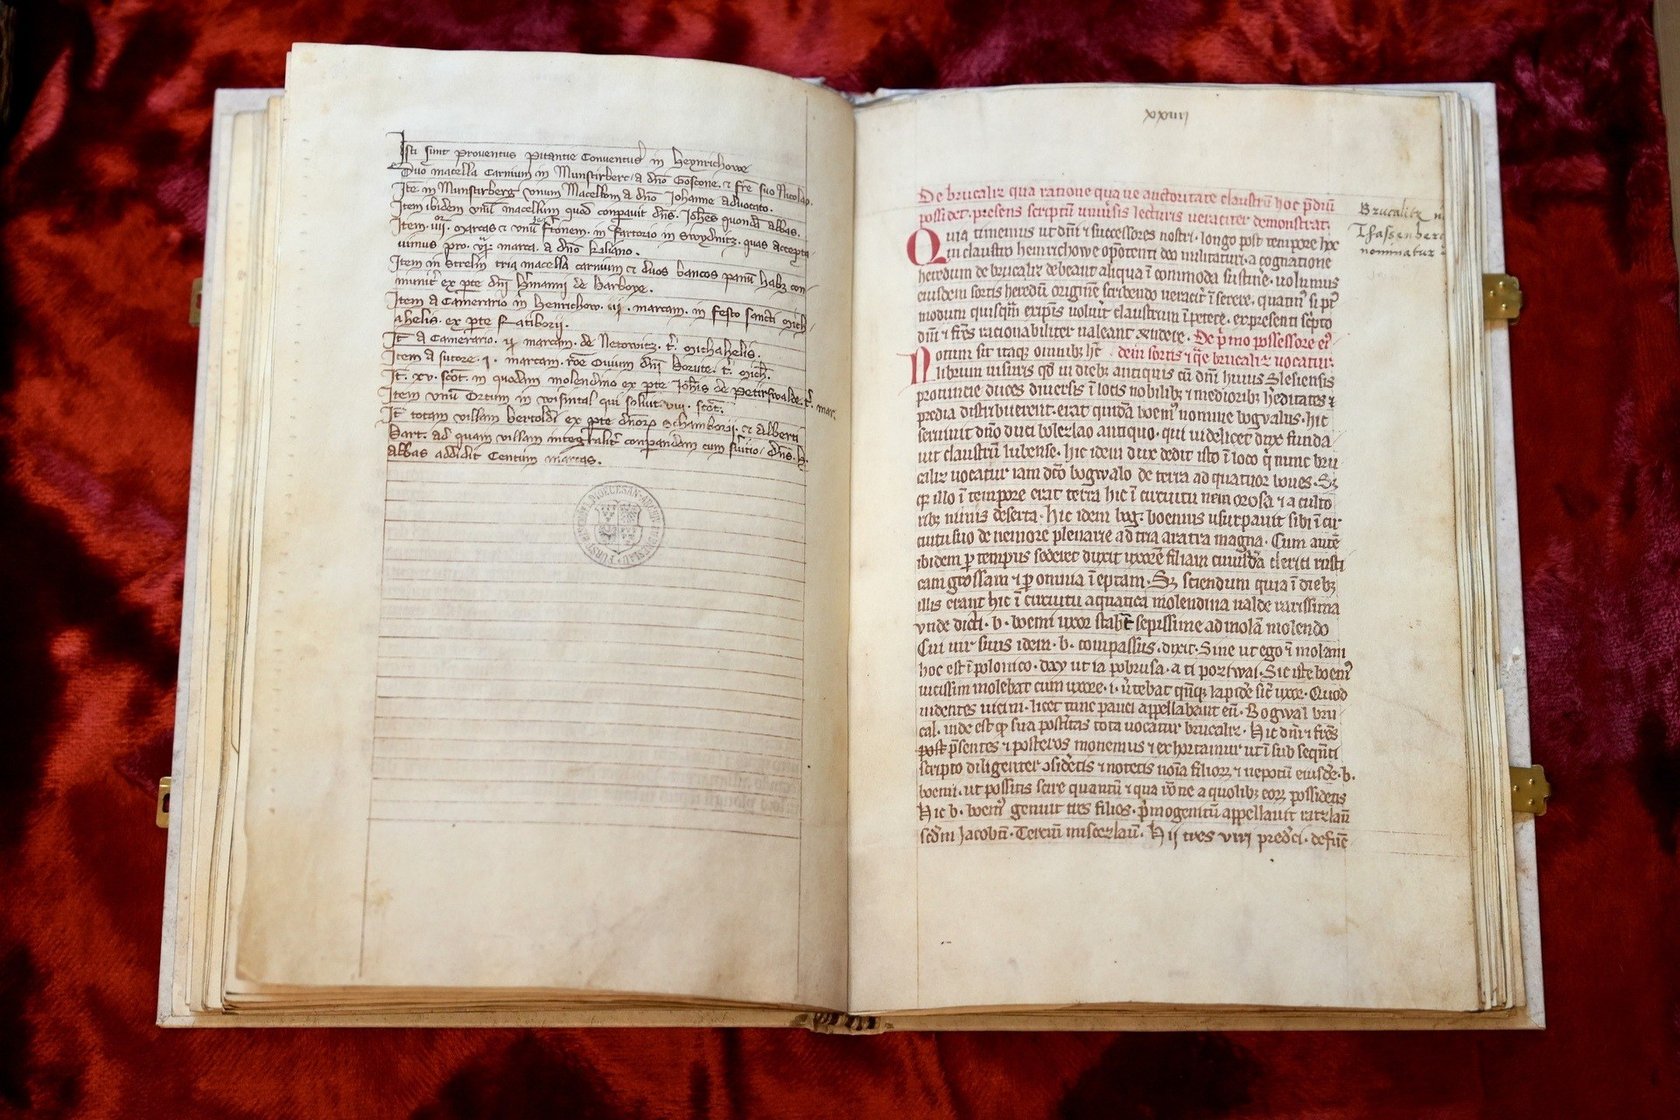 Isti sunt proventus pitantie Conventus in Heynrichowe
Duo macella Carnium in Munstirberc a dno Goscone. et fre suo Nicolao.
Ite in Munstirberg vnum Macellum a dno Iohanne advocato.
Item ibidem vnu macellum quod conpavit dns. Iohes quonda abbas.
Item. iiii. marcas et vnu fertonem. in fartorio in Swydnitz. quas accepta
uimus pro. marca. a dno kiliano.
Item in Strelin tria macella carnium et duos bancos panu habz con
munit ex pte dni hmanni de Barboye.
Item a Camerario in Henrichow. iii. marcam. in festo sancti mich
ahelis. ex pte Ratiborii.
It a Camerario. ij marcam. de Netowitz. t. michahelis.
Item a sutore. i. marcam. roe Ouium dni Borute. t. mich.
It. xv. scot. in quodam molendino ex pte Iohis de Petirswalde. t. marc.
Item vnu Ortum in wisintal qui soluit viii. scot.
It totam villam bertoldi ex pte dnorum Schamborii. et alberti
Bart. ad quam villam integralit conpandam cum seruitio. dns. h.
abbas addidit Centum marcas.
xxiiij
De brucaliz qua ratione qua ue auctoritate claustru hoc pdiu
possidet. presens scriptu uniusis lecturis veraciter demonstrat.
Quia timemus ut dni et successores nostri. longo post tempore hoc
in claustro heinrichowe opotenti deo militaturi. a cognatione
heredum de brucaliz debeant aliqua incommoda sustine. uolumus
eiusdem sortis heredu origine scribendo veracit iserere. quanti si pt
modum quisqm expis voluit claustrum ipetere. ex presenti scpto
dni et frs racionabiliter ualeant rndere. De pmo possessore ei
Notum sit itaq omnibz hc dem sortis et qre brucaliz vocatur.
librum uisuris qd in diebz antiquis cu dni huius Slesiensis
prouincie duces diuersis i locis nobilibz et mediocribz heditates et
predia distribuerent. erat quida boemus nomine bogwalus. hic
seruiuit dno duci bolezlao antiquo. qui uidelicet dux funda
uit claustru lubense. hic idem dux dedit isto i loco q nunc bru
caliz uocatur iam dco bogwalo de terra ad quatuor boues. Sz
qr illo i tempore erat terra hic i circuitu nemorosa et a culto
ribz nimis deserta. hic idem bog. boemus usurpauit sibi i cir
cuitu suo de nemore plenarie ad tria aratra magna. Cum aute
ibidem p tempus sederet duxit uxore filiam cuiusda clerici rusti
cam grossam et p omnia ineptam. Sz sciendum quia i diebz
illis erant hic i circuitu aquatica molendina ualde rarissima
vnde dicti. b. boemi uxor stabat sepissime ad mola molendo
Cui uir suus idem. b. compassus. dixit. Sine ut ego i molam
hoc est i polonico. day ut ia pobrusa. a ti poziwai. Sic iste boemus
uicissim molebat cum uxore. i. utebat qnq lapide sicut uxor. Quod
uidentes uicini. licet tunc pauci appellabant eu. Bogwal bru
cal. inde est qd sua postitas tota uocatur brucaliz. Hic dni et frs
post psentes et posteros monemus et exhortamur ut i sub sequenti
scripto diligenter consideretis et notetis noia filiorum et nepotu eiusde. b.
boemi. ut possitis scire quantu et qua rone a quolibz eorum possidetis
Hic b. boemus genuit tres filios. pmogenitu appellauit ratzlau
scdm Jacobu. Terciu miscezlau. Hij tres viri predci. defunc
Brucalitz
Thassenberc
nominatur